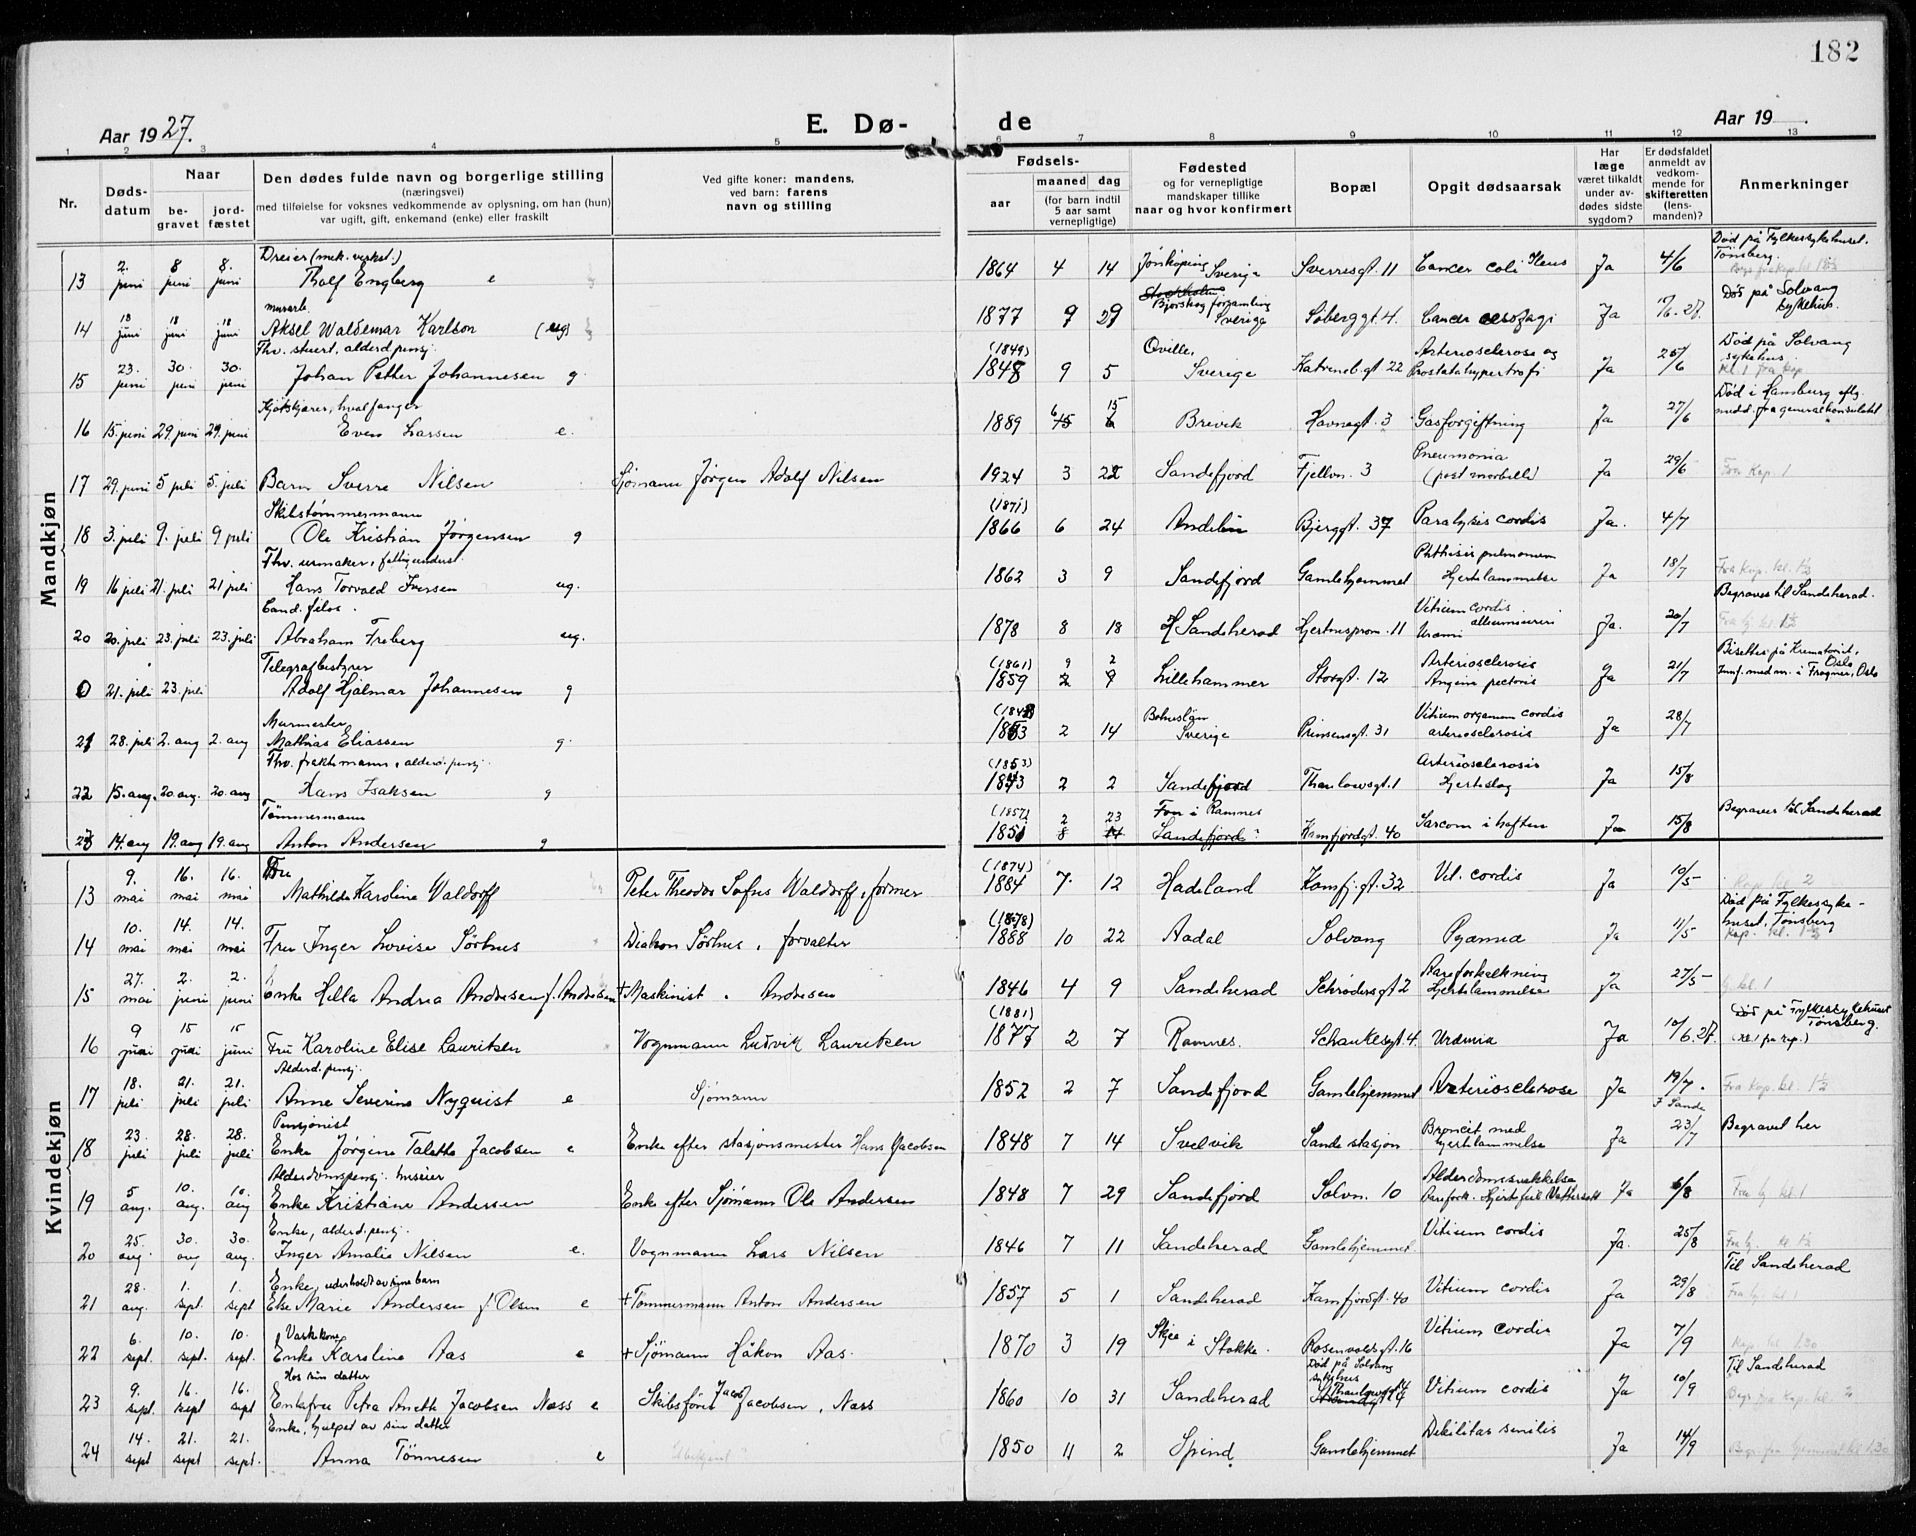 182
Aar 1927. E. Dø- de Aar 19
1 2 3 4 5 6 7 8 9 10 11 12 13
Nr. Døds-datum Naar be-gravet jord-fæstet
Den dødes fulde navn og borgerlige stilling (næringsvei) med tilføielse for voksnes vedkommende av oplysning, om han (hun) var ugift, gift, enkemand (enke) eller fraskilt
Ved gifte koner: mandens, ved barn: farens navn og stilling
Fødsels- aar maaned dag (for barn indtil 5 aar samt vernepligtige)
Fødested og for vernepligtige mandskaper tillike naar og hvor konfirmert
Bopæl
Opgit dødsaarsak
Har læge været tilkaldt under av-dødes sidste sygdom?
Er dødsfaldet anmeldt av vedkom-mende for skifteretten (lens-manden)?
Anmerkninger
Mandkjøn
13 2. juni 8 juni 8. juni Dreier (mek. verkst.) Tholf Engberg e 1864 4 14 Jönköping Sverige Sverresgt. 11 Cancer coli Ileus Ja 4/6 Død på Fylkessykehuset. Tønsberg.
14 13 juni 18 juni 18 juni murarb. Aksel Waldemar Karlson (ug) 1877 9 29 Stockholm Björskog forsamling Sverige Soberggt. 4. Cancer oesofagi Ja 17/6. 27. Død på Solvang sykehus.
15 23. juni 30. juni 30. juni Fhv. stuert, alderd. pensj. Johan Petter Johannesen g. (1849) 1848 9 5 Qville, Sverige Katrineb. gt 22 Arteriosclerose og Prostatahypertrofi Ja 25/6 Død på Solvang sykehus. kl. 1 fra kap.
16 15. juni 29. juni 29. juni Kjøkskjører, hvalfanger Even Larsen e. 1889 6 15 15 6 Brevik Havnegt. 3 Gasforgiftning Ja 27/6 Død i Hamburg eflg. medd. fra generalkonsulatet
17 29. juni 5 juli 5. juli Barn Sverre Nilsen Sjømann Jørgen Adolf Nilsen 1924 3 22 Sandefjord Fjellvn. 3 Pneumonia (post morbilli) Ja 29/6 Fra Kap. 1
18 3. juli 9. juli 9 juli Skibstømmermann Ole Kristian Jørgensen g (1871) 1866 6 24 Andebu Bjerggt. 37 Paralysis cordis Ja. 4/7
19 16 juli 21. juli 21 juli Fhv. urmaker, fattigunderst. Hans Torvald Iversen ug. 1862 3 9 Sandefjord Gamlehjemmet Phthisis pulmonum Hjertelammelse Ja 18/7 Fra Kap. kl. 1½
20 20. juli 23. juli 23. juli Cand. filos. Abraham Freberg ug. 1878 8 18 H Sandeherad Hjertnesprom. 11 Vitium cordis Uræmi Ja. 20/7 Begraves til Sandeherad.
0 21. juli 23. juli Telegrafbestyrer Adolf Hjalmar Johannesen g (1861) 1859 9 2 2 9 Lillehammer Storgt. 12 Arteriosclerosis Angina pectoris Ja 21/7 Bisettes på Krematoriet, Oslo Innf. med nr. i Frogner, Oslo
21 28. juli 2. aug 2. aug Murmester Mathias Eliassen g. 1853 2 14 Bohuslän Sverige Prinsensgt. 31 Vitium organum cordis arteriosclerosis Ja 28/7
22 15. aug. 20. aug. 20. aug Fhv. fraktemann, alderd. pensj. Hans Isaksen g (1853) 1843 2 2 Sandefjord Thaulowsgt. 1 Arteriosclerosis Hjerteslag Ja 15/8
23 14. aug 19. aug 19. aug Tømmermann Anton Andersen g (1857) 1851 2 8 23 14 Fon i Ramnes Sandefjord? Kamfjordgt. 40 Sarcom i hoften Ja 15/8 Begraves til Sandeherad
Kvindekjøn
13 9. mai 16. mai 16. mai Fru Mathilde Karoline Waldorff Peter Theodor Sofus Waldorff, former (1874) 1884 7. 12 Hadeland Kamfj. gt. 32 Vit. cordis Ja 10/5 Kap. kl. 2
14 10. mai 14. mai 14. mai Fru Inger Lovise Sørhus Diakon Sørhus, forvalter (1878) 1888 10 22 Aadal Solvang Pyæmia Ja 11/5 Død på Fylkessyke-huset, Tønsberg Kap. kl. 1½
15 27. mai 2. juni 2. juni Enke Hella Andrea Andresen f. Andersen + Maskinist Andresen 1846 4 9 Sandeherad Schrødersgt 2 Aareforkalkning Hjertelammelse Ja 27/5 kl. 1
16 9 juni 15 juni 15 juni Fru Karoline Elise Lauritzen Vognmann Ludvik Lauritzen (1881) 1877 2 7 Ramnes. Schankesgt 4. Uræmia Ja 10/6. 27. Død på Fylkessykehuset Tønsberg. (kl. 1 fra kap.)
17 18. juli 21. juli 21. juli Alderd. pensj. Anne Severine Nyquist e Sjømann 1852 2 7 Sandefjord Gamlehjemmet Arteriosclerose Ja 19/7. Fra Kap. kl. 1½
18 23. juli 28. juli 28. juli Pensjonist Enke Jørgine Talette Jacobsen e Enke efter stasjonsmester Hans Jacobsen 1848 7 14 Svelvik Sande stasjon Broncit med hjertelammelse Ja F. Sande 23/7 Begravet her
19 5 aug. 10. aug. 10. aug Alderdomspensj. huseier Enke Kristiane Andersen Enke efter Sjømann Ole Andersen 1848 7 29 Sandefjord Solvn. 10 Alderdomssvekkelse Aarefork. Hjertefeil Vattersott Ja 6/8 kl. 1
20 25. aug. 30. aug 30. aug. Enke, alderd. pensj. Inger Amalie Nilsen e. Vognmann Lars Nilsen 1846 7 11 Sandeherad Gamlehjemmet. Vitium cordis Ja. 25/8
21 28. aug. 1. sept. 1. sept Enke, underholdt av sine barn Else Marie Andersen f. Olsen e + Tømmermann Anton Andersen 1857 5 1 Sandeherad Kamfjordgt. 40 Vitium cordis Ja 29/8 Til Sandeherad
22 6. sept. 10. sept. 10. sept. Vaskekone Enke Karoline Aas e + Sjømann Håkon Aas. 1870 3 19 Skjee i Stokke. Rosenvoldsgt. 16 Vitium cordis Ja 7/9 Kap. kl. 1.30
23 9. sept. 16. sept 16. sept Hos sin datter Enkefru Petra Anette Jacobsen Næss e Skibsfører Jacob Jacobsen, Næss 1860 10 31 Sandeherad Død på Solvang sykehus Thaulowsgt. 14 Vitium cordis Ja 10/9 Til Sandeherad
24 14. sept 21. sept 21. sept. Enke, hjulpet av sin datter Anna Tønnesen e Ubekjent 1850 11 2 Spind. Gamlehjemmet Debilitas senilis Ja 14/9